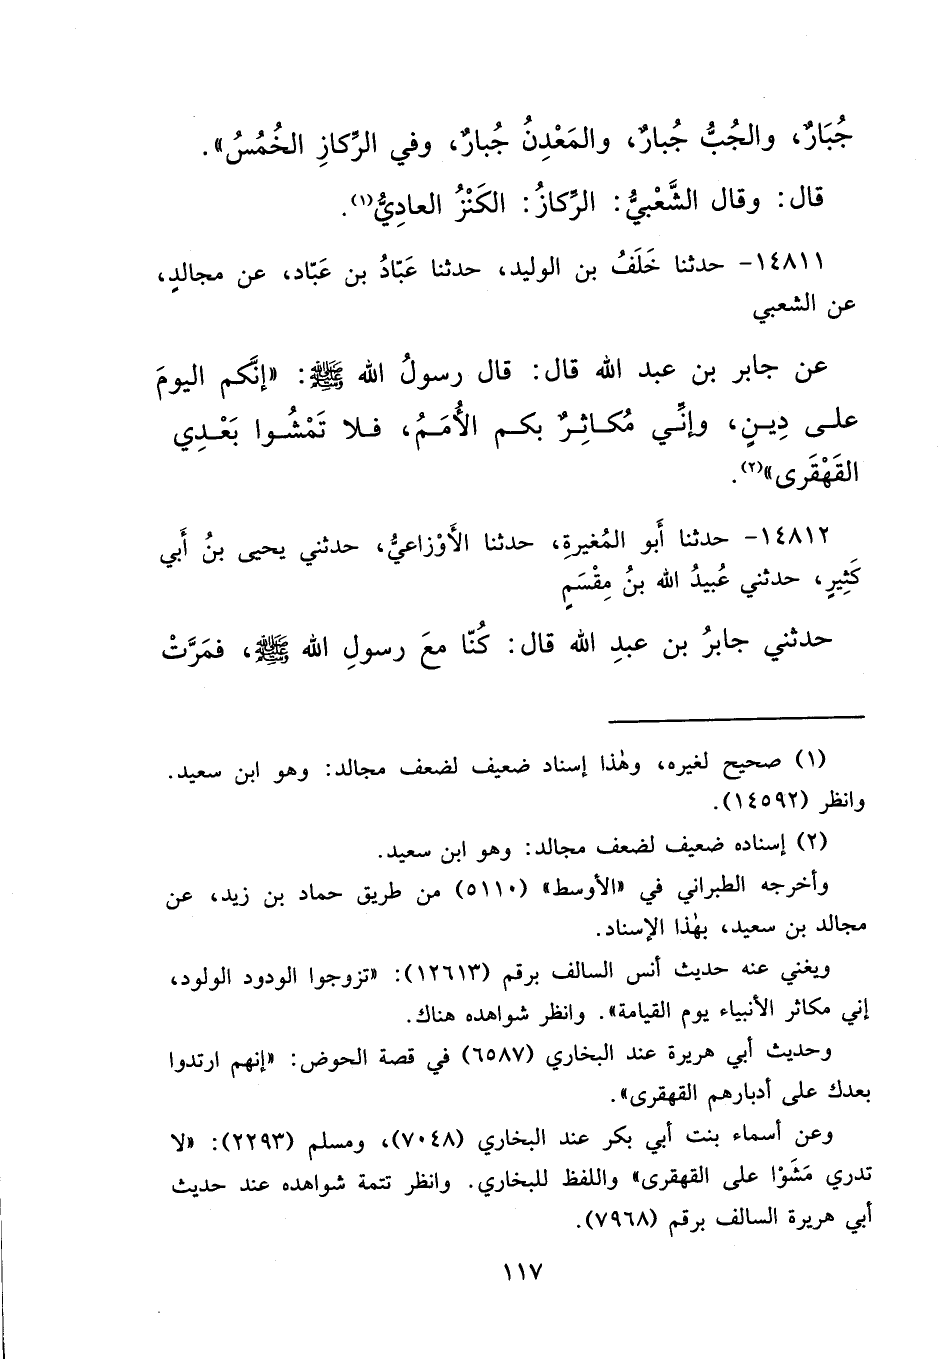 جُبَارٌ، والجُبُّ جُبارٌ، والمَعْدِنُ جُبارٌ، وفي الرِّكازِ الخُمُسُ».
قال: وقال الشَّعْبيُّ: الرِّكازُ: الكَنْزُ العادِيُّ(١).
١٤٨١١- حدثنا خَلَفُ بن الوليد، حدثنا عَبّادُ بن عَبّاد، عن مجالدٍ،
عن الشعبي
عن جابر بن عبد الله قال: قال رسولُ الله ﷺ: «إنَّكم اليومَ
على دِينٍ، وإنِّي مُكاثِرٌ بكم الأُمَمُ، فلا تَمْشُوا بَعْدِي
القَهْقَرى»(٢).
١٤٨١٢- حدثنا أَبو المُغيرةِ، حدثنا الأَوْزاعيُّ، حدثني يحيى بنُ أَبي
كَثِيرٍ، حدثني عُبيدُ الله بنُ مِقْسَمٍ
حدثني جابرُ بن عبدِ الله قال: كُنّا معَ رسولِ الله ﷺ، فمَرَّتْ
(١) صحيح لغيره، وهٰذا إسناد ضعيف لضعف مجالد: وهو ابن سعيد.
وانظر (١٤٥٩٢).
(٢) إسناده ضعيف لضعف مجالد: وهو ابن سعيد.
وأخرجه الطبراني في «الأوسط» (٥١١٠) من طريق حماد بن زيد، عن
مجالد بن سعيد، بهٰذا الإسناد.
ويغني عنه حديث أنس السالف برقم (١٢٦١٣): «تزوجوا الودود الولود،
إني مكاثر الأنبياء يوم القيامة». وانظر شواهده هناك.
وحديث أبي هريرة عند البخاري (٦٥٨٧) في قصة الحوض: «إنهم ارتدوا
بعدك على أدبارهم القهقرى».
وعن أسماء بنت أبي بكر عند البخاري (٧٠٤٨)، ومسلم (٢٢٩٣): «لا
تدري مَشَوْا على القهقرى» واللفظ للبخاري. وانظر تتمة شواهده عند حديث
أبي هريرة السالف برقم (٧٩٦٨).
١١٧